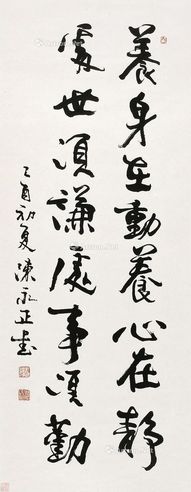 養身在動養心在靜
處世須謙處事須勤
乙酉初夏陳永正書